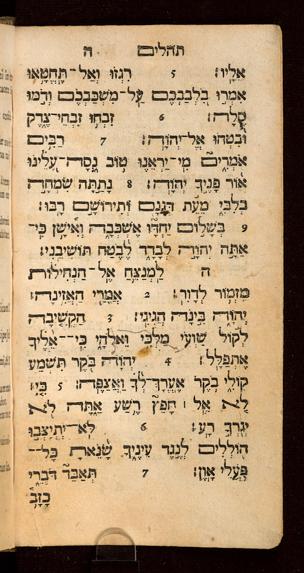 תהלים ה
אֵלָיו׃ 5 רִגְזוּ וְאַל־תֶּחֱטָאוּ
אִמְרוּ בִלְבַבְכֶם עַל־מִשְׁכַּבְכֶם וְדֹמּוּ
סֶלָה׃ 6 זִבְחוּ זִבְחֵי־צֶדֶק
וּבִטְחוּ אֶל־יְהוָה׃ 7 רַבִּים
אֹמְרִים מִי־יַרְאֵנוּ טוֹב נְסָה־עָלֵינוּ
אוֹר פָּנֶיךָ יְהוָה׃ 8 נָתַתָּה שִׂמְחָה
בְלִבִּי מֵעֵת דְּגָנָם וְתִירוֹשָׁם רָבּוּ׃
9 בְּשָׁלוֹם יַחְדָּו אֶשְׁכְּבָה וְאִישָׁן כִּי־
אַתָּה יְהוָה לְבָדָד לָבֶטַח תּוֹשִׁיבֵנִי׃
ה לַמְנַצֵּחַ אֶל־הַנְּחִילוֹת
מִזְמוֹר לְדָוִד׃ 2 אֲמָרַי הַאֲזִינָה׃
יְהוָה בִּינָה הֲגִיגִי׃ 3 הַקְשִׁיבָה
לְקוֹל שַׁוְעִי מַלְכִּי וֵאלֹהָי כִּי־אֵלֶיךָ
אֶתְפַּלָּל׃ 4 יְהוָה בֹּקֶר תִּשְׁמַע
קוֹלִי בֹּקֶר אֶעֱרָךְ־לְךָ וַאֲצַפֶּה׃ 5 כִּי
לֹא אֵל׀ חָפֵץ רֶשַׁע אָתָּה לֹא
יְגֻרְךָ רָע׃ 6 לֹא־יִתְיַצְּבוּ
הוֹלְלִים לְנֶגֶד עֵינֶיךָ שָׂנֵאתָ כָּל־
פֹּעֲלֵי אָוֶן׃ 7 תְּאַבֵּד דֹּבְרֵי
כָזָב